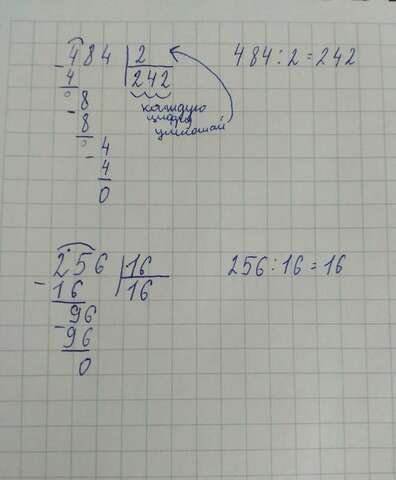 484 | 2 484 : 2 = 242
- 4 242
0 8 каждую
- 8 цифру
0 4 умножай
- 4
0
256 | 16 256 : 16 = 16
- 16 16
96
- 96
0